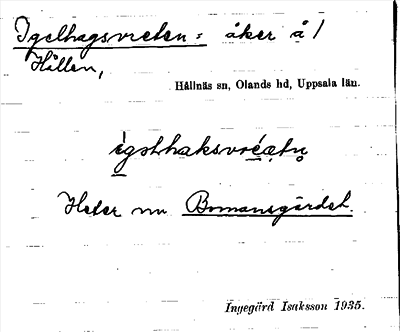 Igelhagsvreten: åker å/
Hållen,
Hållnäs sn, Olands hd, Uppsala län.
Heter nu Bomansgärdet.
Ingegärd Isaksson 1935.